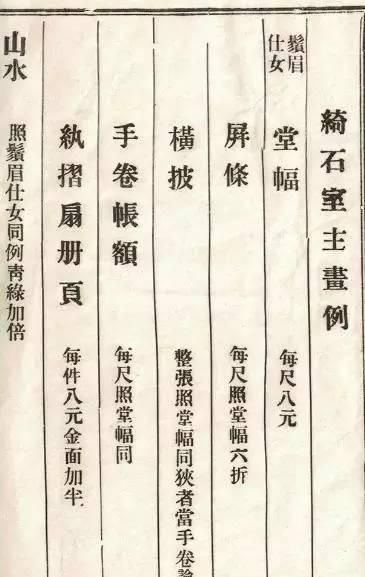 綺石室主畫例
鬚眉仕女 堂幅 每尺八元
屏條 每尺照堂幅六折
橫披 整張照堂幅同狹者當手卷論
手卷帳額 每尺照堂幅同
紈摺扇册頁 每件八元金面加半
山水 照鬚眉仕女同例靑綠加倍